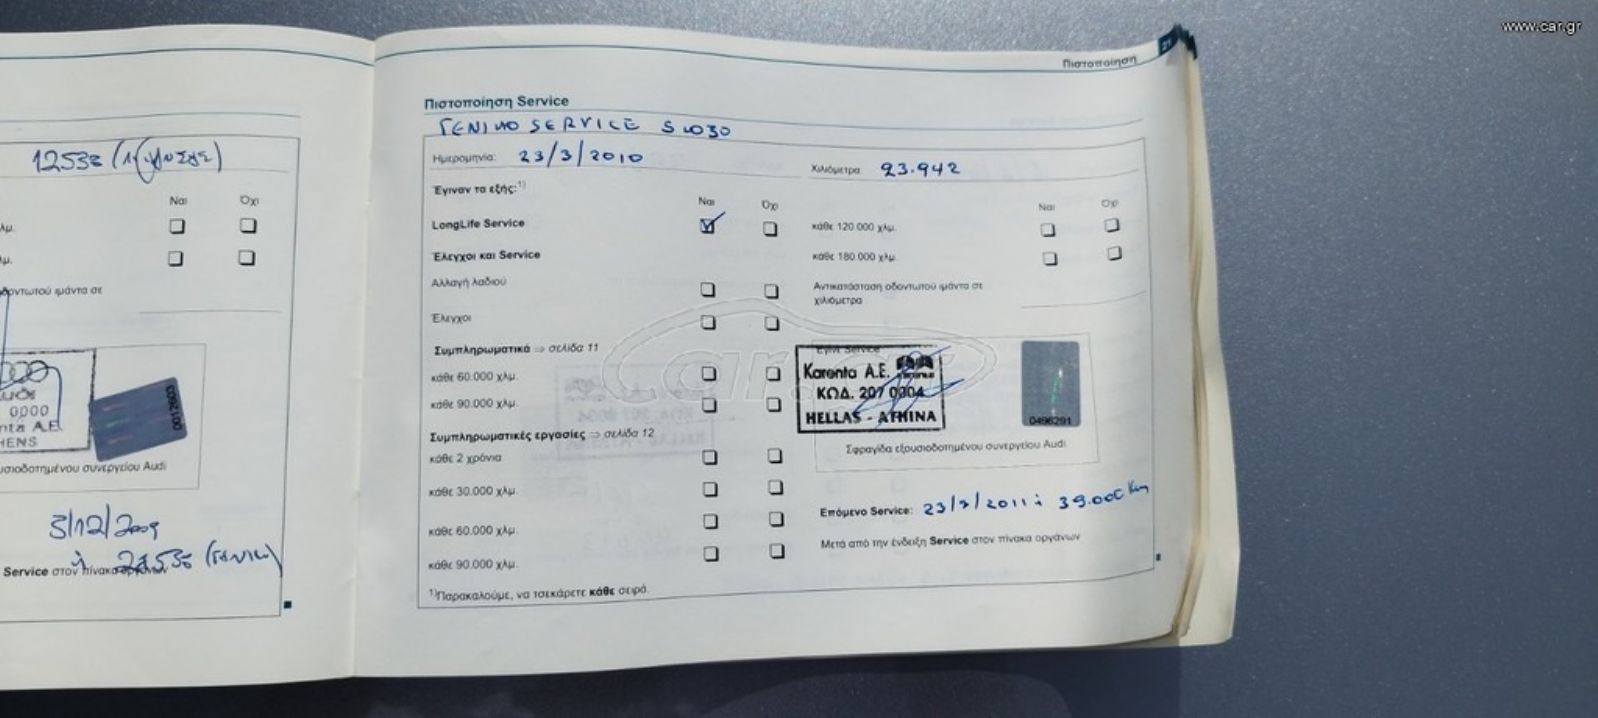 www.car.gr
21
Πιστοποίηση
12538
Ναι Όχι
λμ.
λμ.
δοντωτού ιμάντα σε
0000
nta A.E.
HENS
0012603
υσιοδοτημένου συνεργείου Audi
3/12/2009
Service στον πίνακα οργάνων
Πιστοποίηση Service
ΓΕΝΙΚΟ SERVICE
Ημερομηνία: 23/3/2010
Χιλιόμετρα: 23.942
Έγιναν τα εξής:¹⁾
Ναι Όχι
LongLife Service
Έλεγχοι και Service
Αλλαγή λαδιού
Έλεγχοι
Συμπληρωματικά ⇒ σελίδα 11
κάθε 60.000 χλμ.
κάθε 90.000 χλμ.
Συμπληρωματικές εργασίες ⇒ σελίδα 12
κάθε 2 χρόνια
κάθε 30.000 χλμ.
κάθε 60.000 χλμ.
κάθε 90.000 χλμ.
¹⁾Παρακαλούμε, να τσεκάρετε κάθε σειρά.
Ναι Όχι
κάθε 120.000 χλμ.
κάθε 180.000 χλμ.
Αντικατάσταση οδοντωτού ιμάντα σε
χιλιόμετρα
car.gr
Έγινε Service
Karenta A.E.
ΚΩΔ. 207 0004
HELLAS - ATHINA
0496291
Σφραγίδα εξουσιοδοτημένου συνεργείου Audi
Επόμενο Service: 23/3/2011 ή 39.000 Km
Μετά από την ένδειξη Service στον πίνακα οργάνων